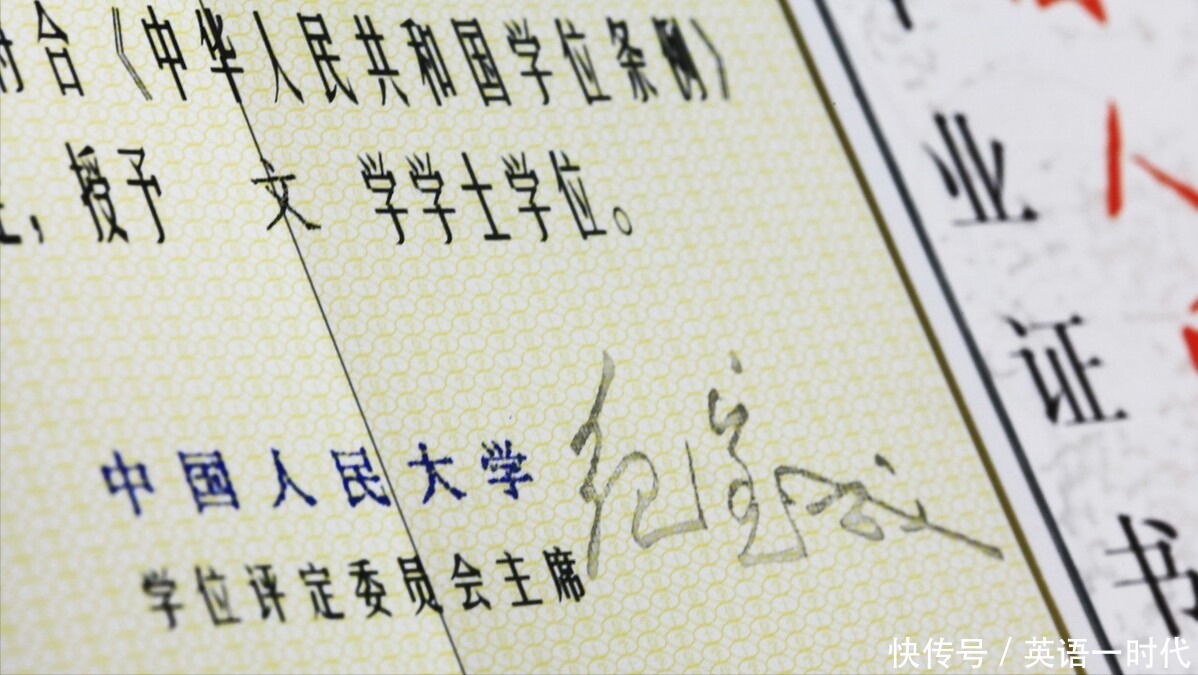 符合《中华人民共和国学位条例》
，授予 文 学学士学位。
中国人民大学 纪宝成
学位评定委员会主席
业
证
书
快传号 / 英语一时代